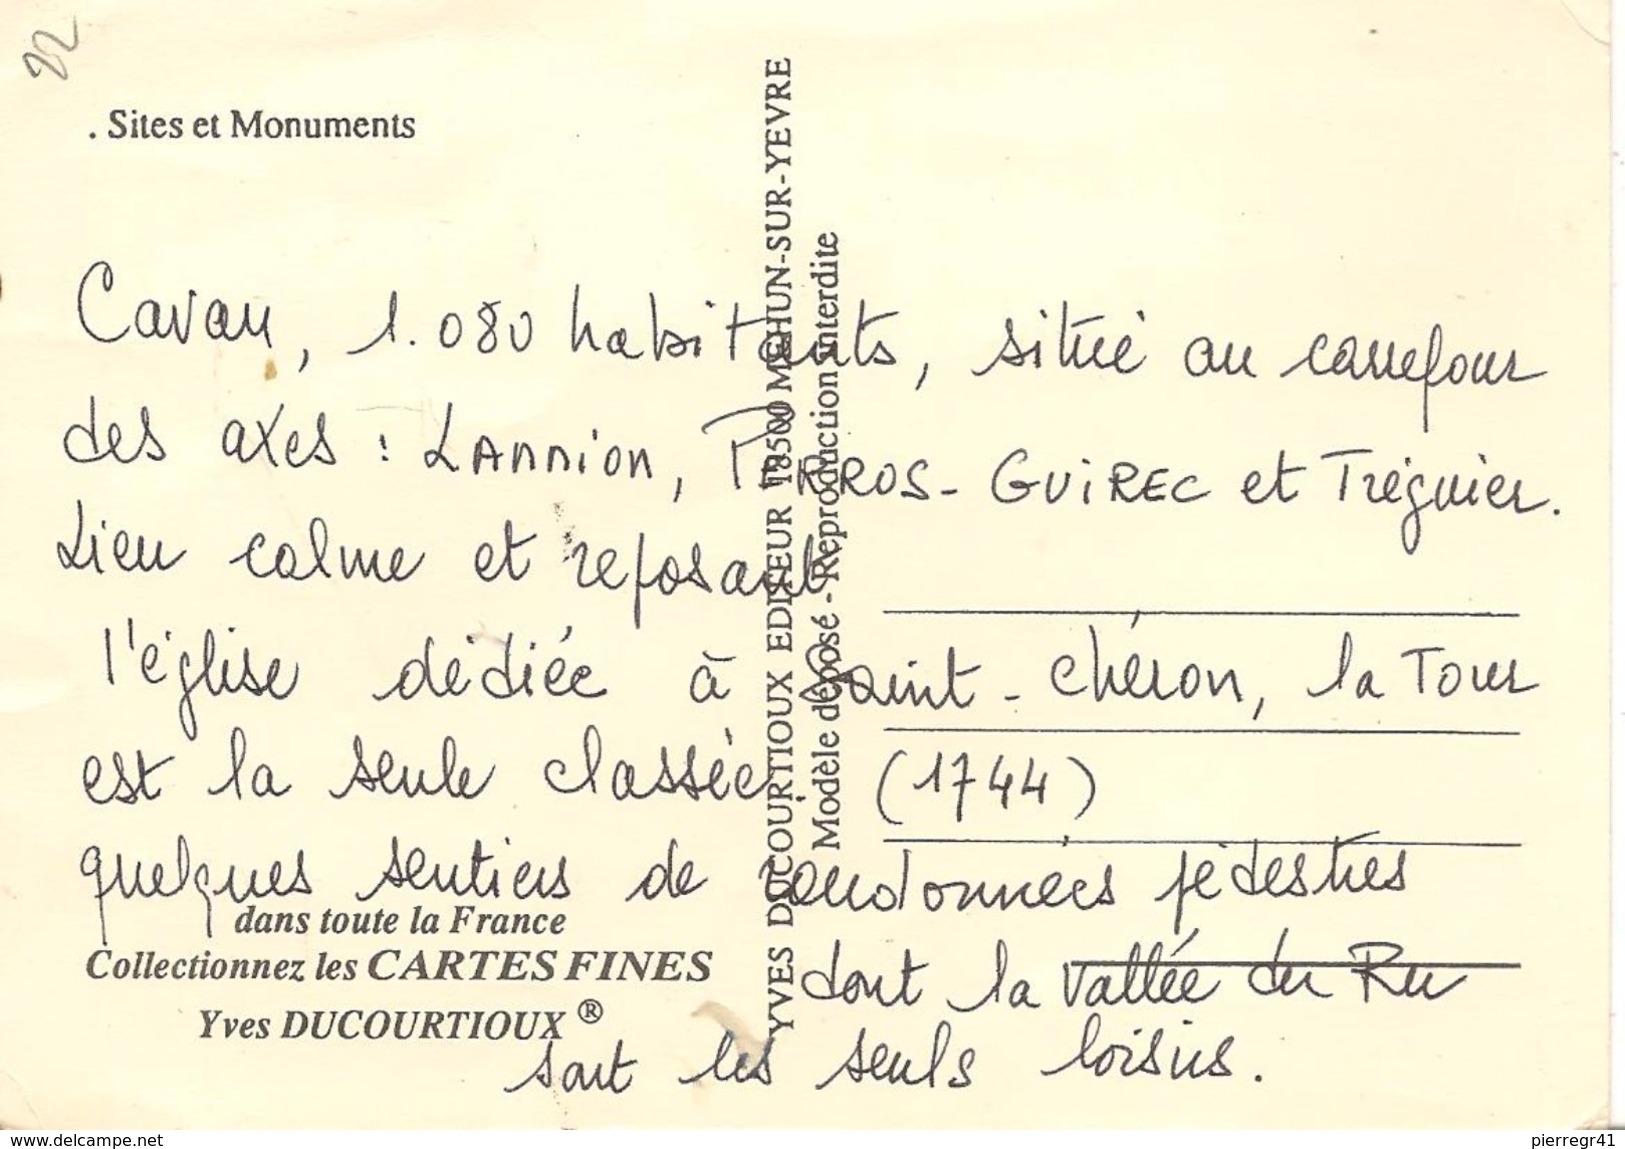 22
. Sites et Monuments
Cavan, 1.080 habitants, situé au carrefour
des axes : Lannion, PERROS-GUIREC et Tréguier.
Lieu calme et reposant
l'église dédiée à Saint-Chéron, la Tour
est la seule classée (1744)
quelques sentiers de randonnées pédestres
dont la vallée du Ru
sont les seuls loisirs.
dans toute la France
Collectionnez les CARTES FINES
Yves DUCOURTIOUX ®
YVES DUCOURTIOUX EDITEUR 18500 MEHUN-SUR-YEVRE
Modèle déposé - Reproduction interdite
www.delcampe.net
pierregr41